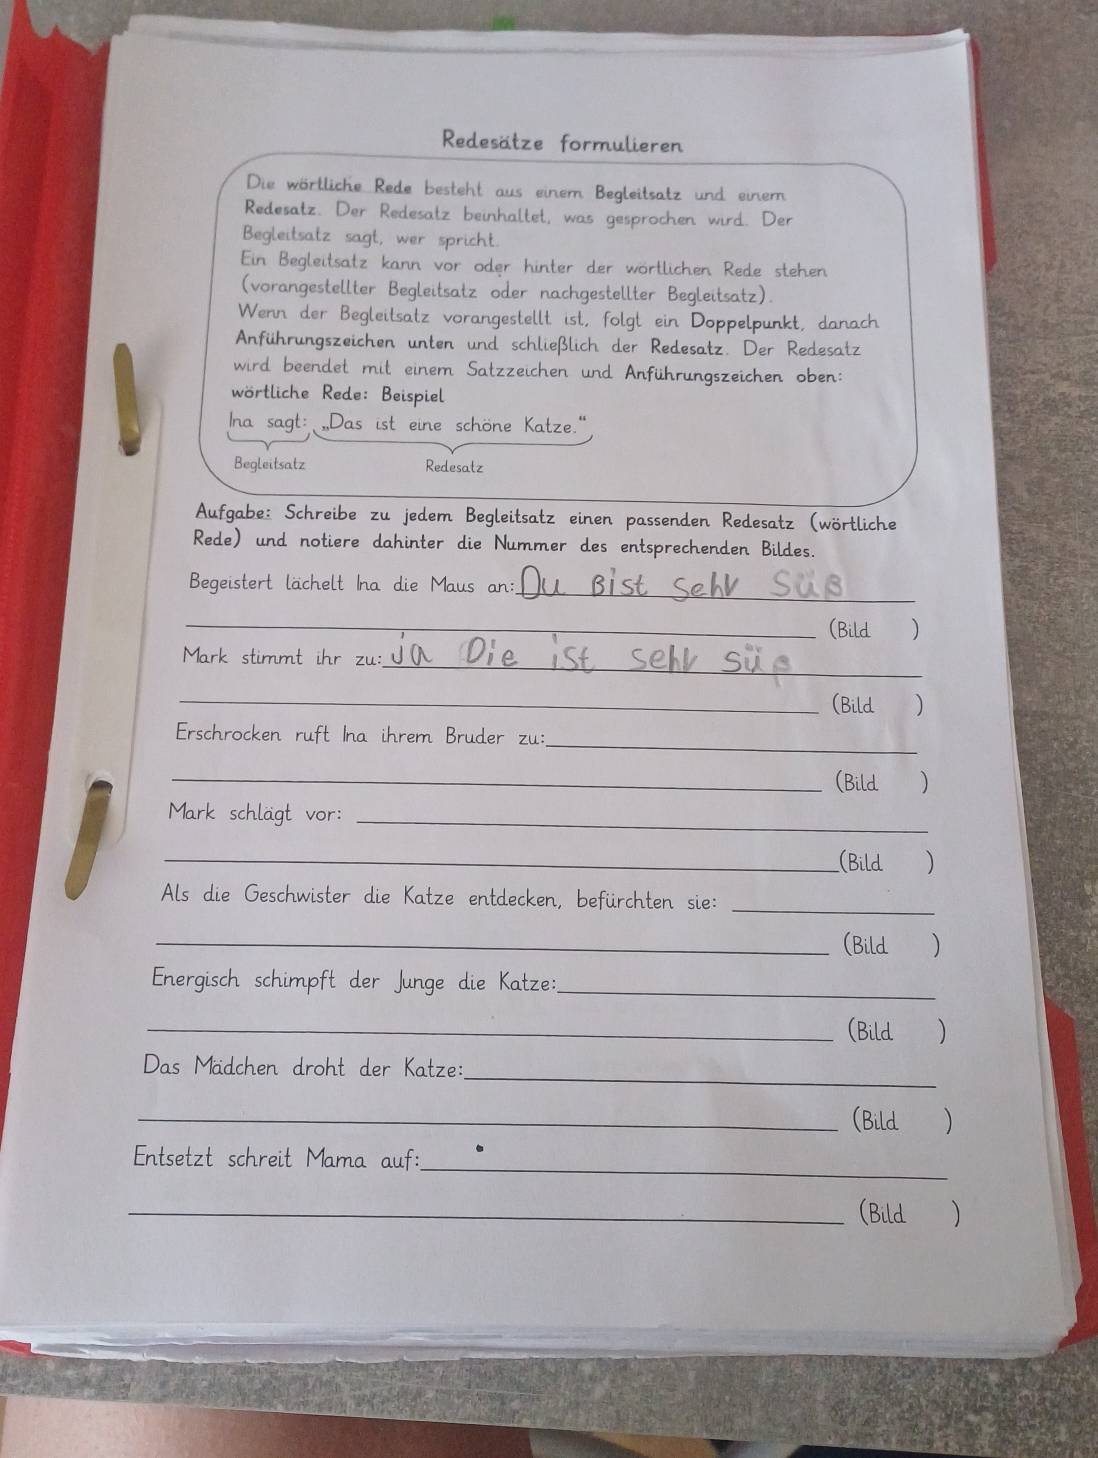 Redesätze formulieren
Die wörtliche Rede besteht aus einem Begleitsatz und einem
Redesatz. Der Redesatz beinhaltet, was gesprochen wird. Der
Begleitsatz sagt, wer spricht.
Ein Begleitsatz kann vor oder hinter der wörtlichen Rede stehen
(vorangestellter Begleitsatz oder nachgestellter Begleitsatz).
Wenn der Begleitsatz vorangestellt ist, folgt ein Doppelpunkt, danach
Anführungszeichen unten und schließlich der Redesatz. Der Redesatz
wird beendet mit einem Satzzeichen und Anführungszeichen oben:
wörtliche Rede: Beispiel
Ina sagt: „Das ist eine schöne Katze.“
Begleitsatz Redesatz
Aufgabe: Schreibe zu jedem Begleitsatz einen passenden Redesatz (wörtliche
Rede) und notiere dahinter die Nummer des entsprechenden Bildes.
Begeistert lächelt Ina die Maus an: Du Bist Sehr Süß
(Bild )
Mark stimmt ihr zu: Ja Die ist sehr süß
(Bild )
Erschrocken ruft Ina ihrem Bruder zu:
(Bild )
Mark schlägt vor:
(Bild )
Als die Geschwister die Katze entdecken, befürchten sie:
(Bild )
Energisch schimpft der Junge die Katze:
(Bild )
Das Mädchen droht der Katze:
(Bild )
Entsetzt schreit Mama auf:
(Bild )